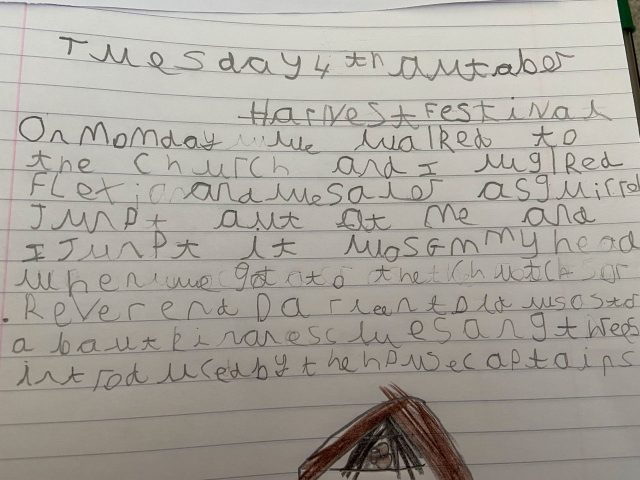 Tuesday 4th autabor
Harvest Festival
On Monday we walked to
the Church and I walked
Flexi and we sor a sguirrel
Jumpt aut at me and
I Jumpt it wos on my head
when we got to the church
Reverend Dareen told us
a baut we sang
introduced by the house captains